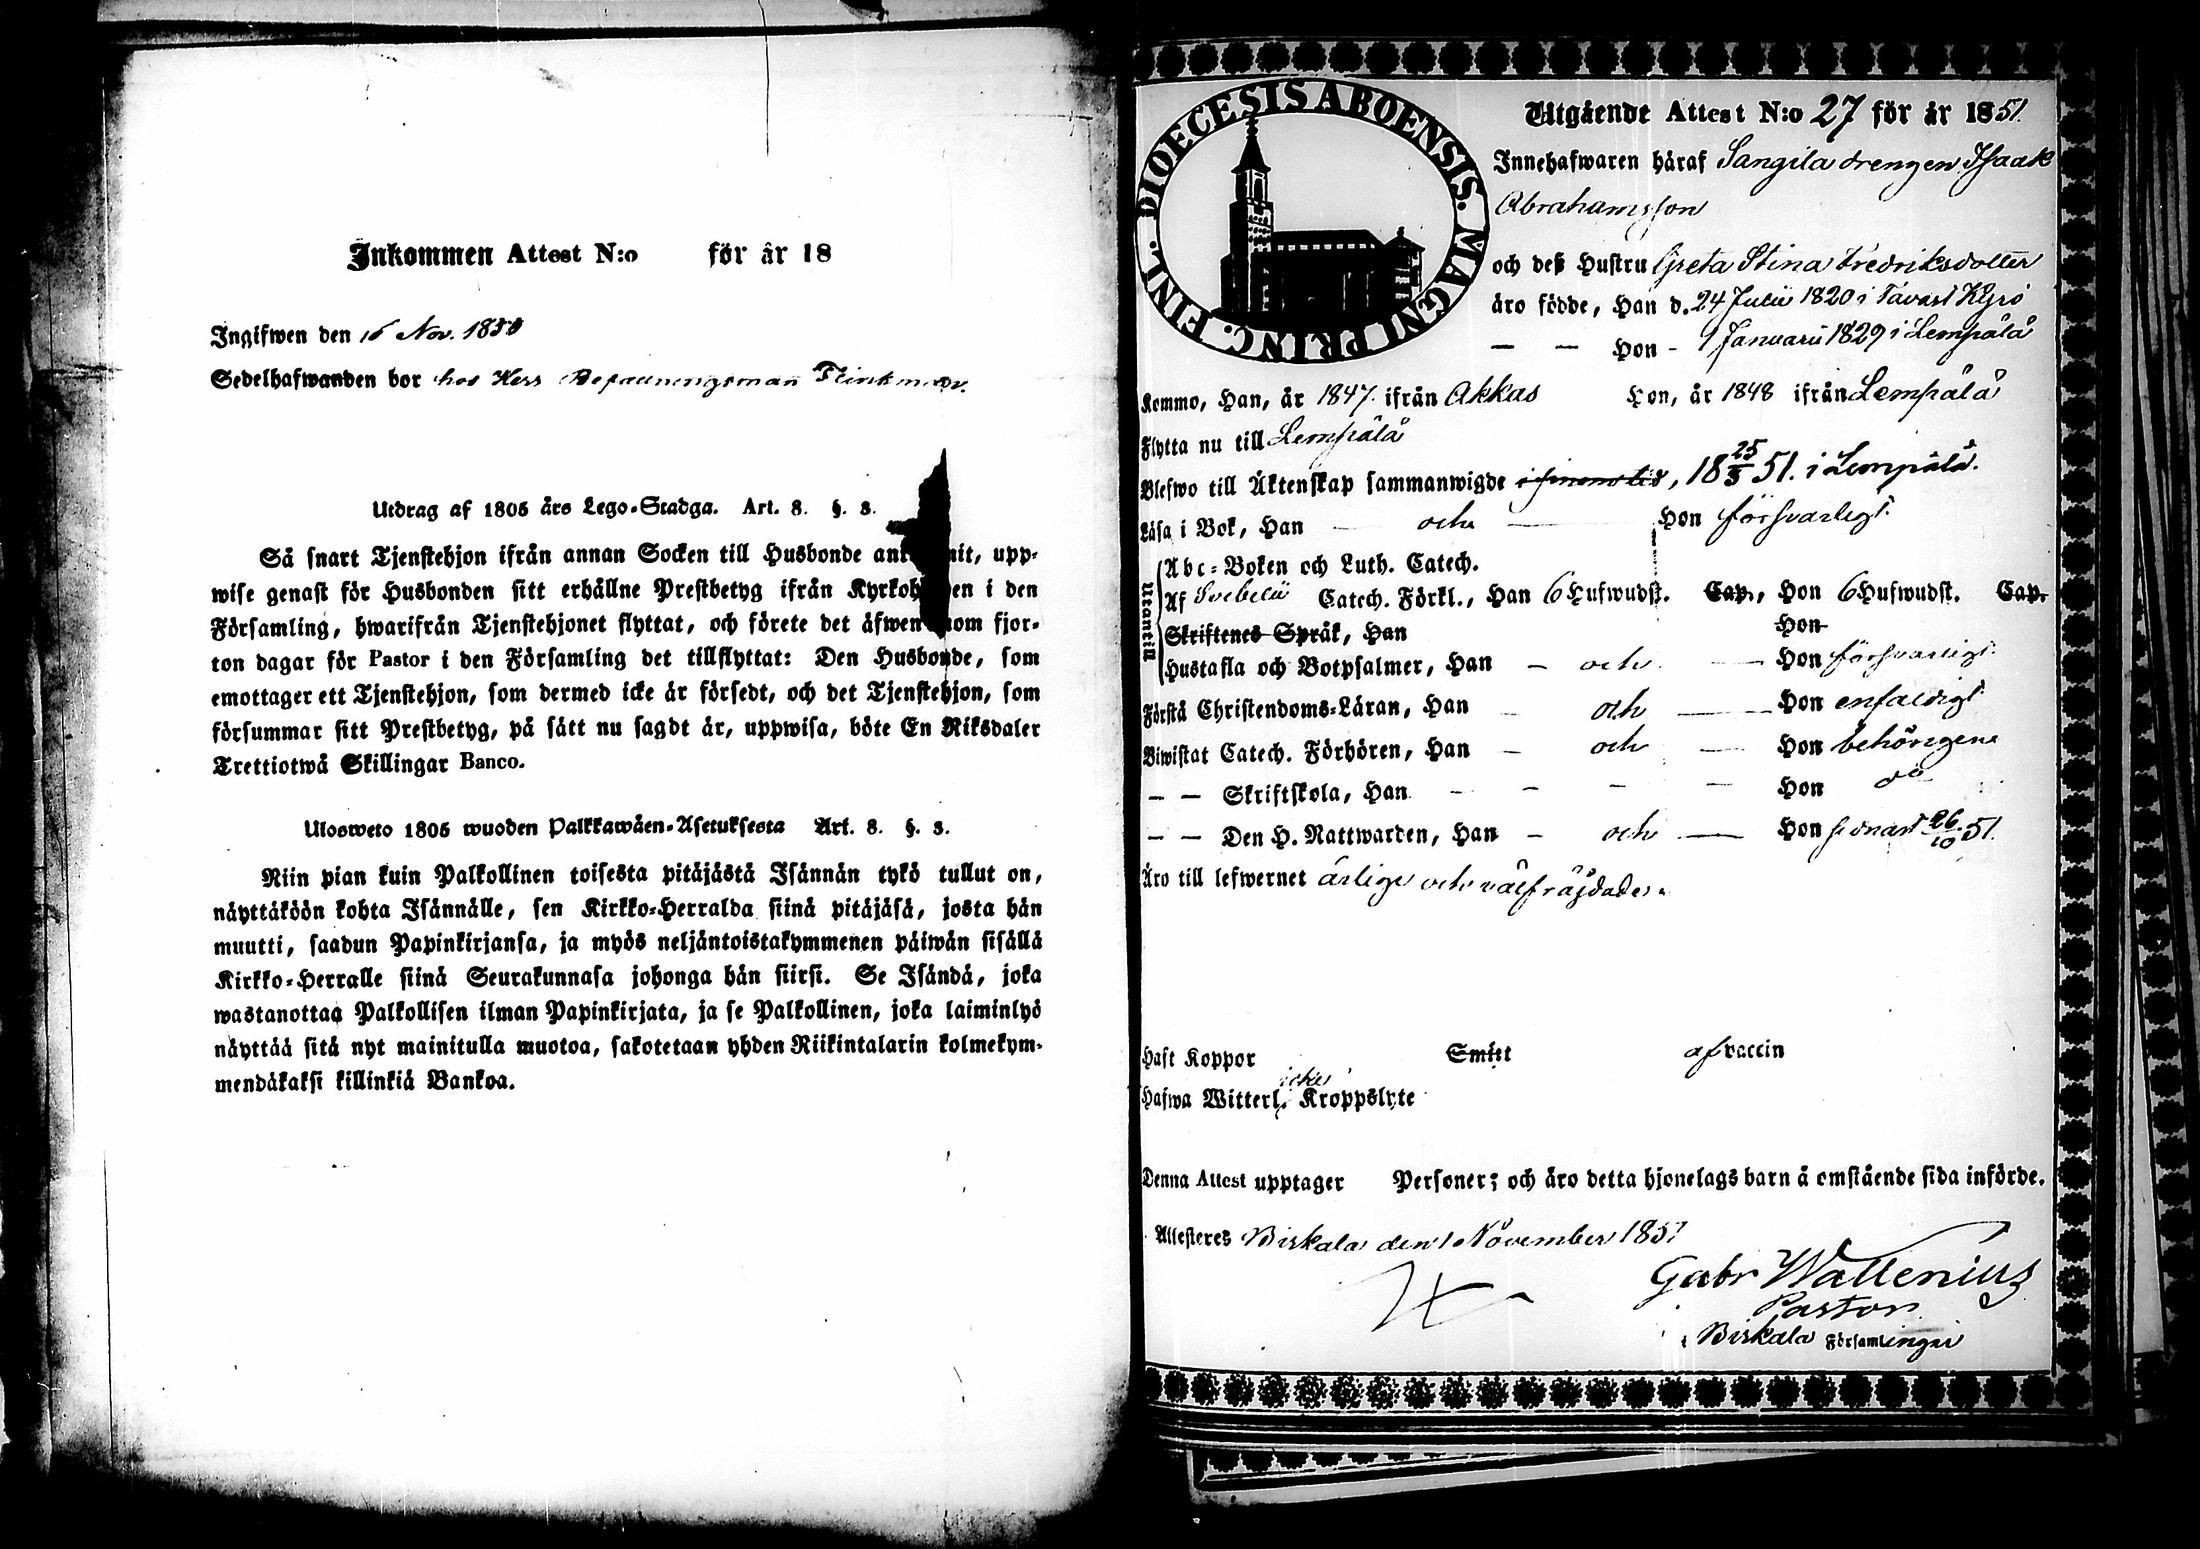 Inkommen Attest N:o för år 18
Ingifwen den 16 Nov. 1850
Sedelhafwanden bor hos Herr Befallningsman Flinkman.
Utdrag af 1805 års Lego-Stadga. Art. 8. §. 3.
Så snart Tjenstehjon ifrån annan Socken till Husbonde ankommit, upp-
wise genast för Husbonden sitt erhållne Prestbetyg ifrån Kyrkoherden i den
Församling, hwarifrån Tjenstehjonet flyttat, och förete det äfwen inom fjor-
ton dagar för Pastor i den Församling det tillflyttat: Den Husbonde, som
emottager ett Tjenstehjon, som dermed icke är försedt, och det Tjenstehjon, som
försummar sitt Prestbetyg, på sätt nu sagdt är, uppwisa, böte En Riksdaler
Trettiotwå Skillingar Banco.
Ulosweto 1805 wuoden Palkkawäen-Asetuksesta Art. 8. §. 3.
Niin pian kuin Palkollinen toisesta pitäjästä Isännän tykö tullut on,
näyttäköön kohta Isännälle, sen Kirkko-Herralda siinä pitäjäsä, josta hän
muutti, saadun Papinkirjansa, ja myös neljäntoistakymmenen päiwän sisällä
Kirkko-Herralle siinä Seurakunnasa johonga hän siirsi. Se Isändä, joka
wastanottaa Palkollisen ilman Papinkirjata, ja se Palkollinen, joka laiminlyö
näyttää sitä nyt mainitulla muotoa, sakotetaan yhden Riikintalarin kolmekym-
mendäkaksi killinkiä Bankoa.
DIOECESIS ABOENSIS. MAGNI PRINC. FINL.
Utgående Attest N:o 27 för år 1851.
Innehafwaren häraf Sangila drengen Isaak
Abrahamsson
och deß Hustru Greta Stina Fredriksdotter
äro födde, Han d. 24 Julii 1820 i Tavast Kyro
— — Hon - 1 Januarii 1829 i Lempälä
Kommo, Han, år 1847. ifrån Akkas Hon, år 1848 ifrån Lempälä
Flytta nu till Lempälä
Blefwo till Äktenskap sammanwigde i sinom tid, 18 25/3 51. i Lempälä.
Läsa i Bok, Han — och — Hon försvarligt
Utantill
Abc-Boken och Luth. Catech.
Af Svebelii Catech. Förkl., Han 6 Hufwudst. Cap., Hon 6 Hufwudst. Cap.
Skriftenes Språk, Han Hon
Hustafla och Botpsalmer, Han — och — Hon försvarligt
Förstå Christendoms-Läran, Han — och — Hon enfaldigt
Biwistat Catech. Förhören, Han — och — Hon behörigen
— — Skriftskola, Han - - - - Hon do
— — Den H. Nattwarden, Han — och — Hon sednast 26/10 51.
Äro till lefwernet ärlige och välfräjdade.
Haft Koppor Smitt af vaccin
icke
Hafwa Witterl. Kroppslyte
Denna Attest upptager Personer; och äro detta hjonelags barn å omstående sida införde.
Attesteres Birkala den 1 November 1851
Gabr Wallenius
Pastor
i Birkala Församlingar